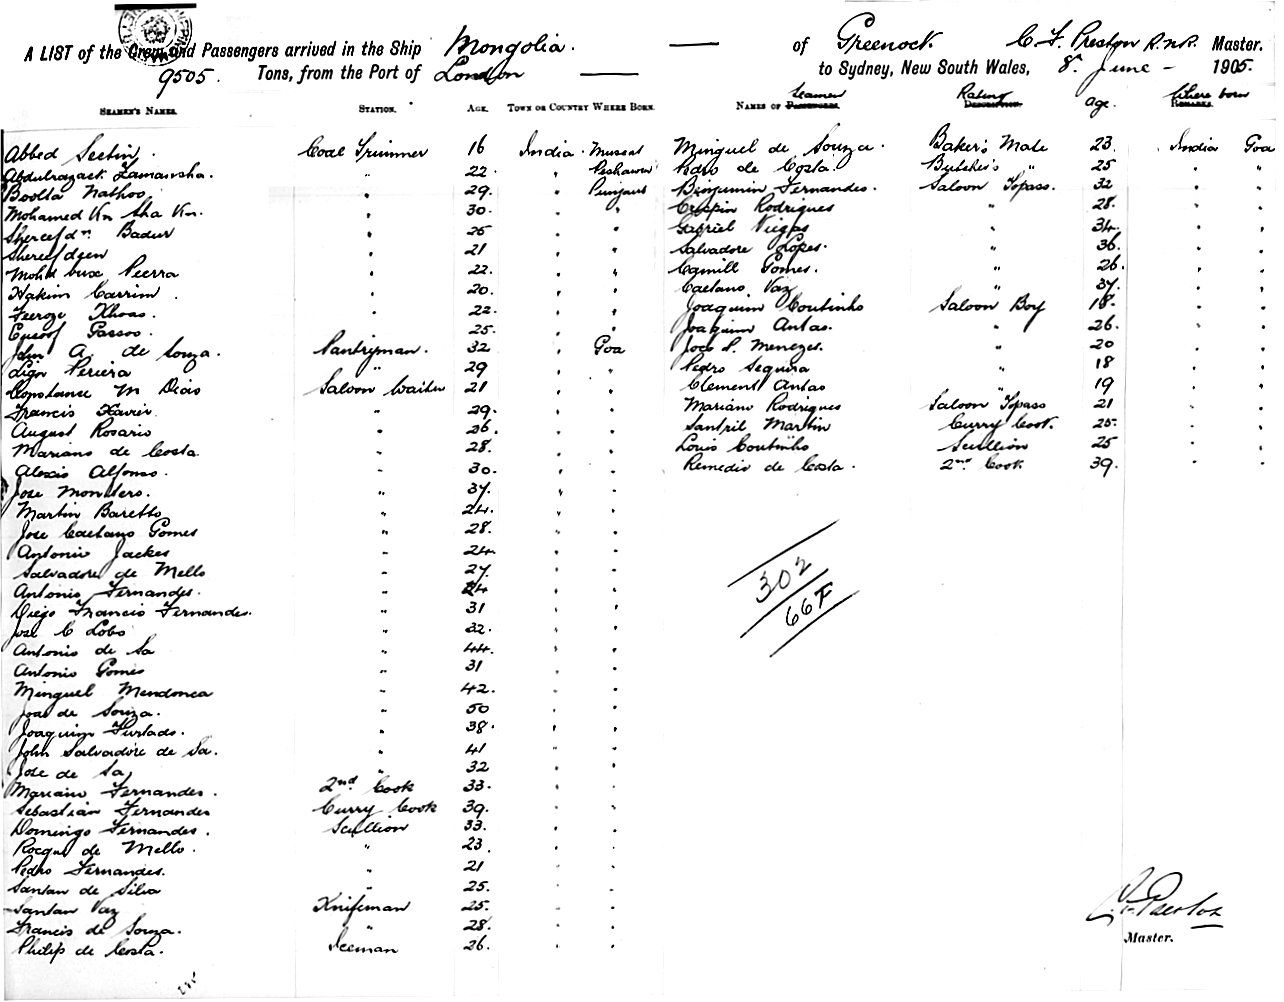 A LIST of the Crew and Passengers arrived in the Ship Mongolia. — of Greenock. C. F. Preston R.N.R. Master.
9505. Tons, from the Port of London — to Sydney, New South Wales, 8th June - 1905.
SEAMEN'S NAMES. STATION. AGE. TOWN OR COUNTRY WHERE BORN.
Abbed Coal Trimmer 16 India. Muscat
Abdulrazack " 22. " Peshawur
Nathoo " 29. " Punjaub
Mohamed Sha " 30. " "
Badur " 25 " "
Shereefdeen " 21 " "
Mohd bux Peerra " 22. " "
Hakim Carrim. " 20. " "
Feeroze Khoas. " 22. " "
Eusoof " 25. " "
John A. de Souza. Pantryman. 32 " Goa
Periera " 29 " "
Constance M Dias Saloon Waiter 21 " "
Francis Xavier " 29. " "
August Rosario " 26. " "
Mariano de Costa " 28. " "
Alexis Alfonso. " 30. " "
Jose Monteiro. " 37. " "
Martin Baretto " 24. " "
Jose Caetano Gomes " 28. " "
Antonio Jackes " 24 " "
Salvadore de Mello " 27. " "
Antonio Fernandes. " 24 " "
Diego Francis Fernandes. " 31 " "
Jose C Lobo " 32. " "
Antonio de Sa " 44. " "
Antonio Gomes " 31 " "
Minguel Mendonca " 42. " "
Joao de Souza. " 50 " "
Joaquim Furtado. " 38. " "
John Salvadore de Sa. " 41 " "
Jose de Sa " 32 " "
Mariano Fernandes. 2nd Cook 33. " "
Sebastian Fernandes Curry Cook 39. " "
Domingo Fernandes. Scullion 33. " "
Rocque de Mello. " 23 " "
Pedro Fernandes. " 21 " "
Santan de Silva " 25. " "
Santan Vaz Knifeman 25. " "
Francis de Souza. " 28. " "
Philip de Costa. Iceman 26. " "
NAMES OF PASSENGERS. Seamen DESCRIPTION. Rating age. REMARKS. Where born
Minguel de Souza. Baker's Mate 23. India Goa
Pedro de Costa. Butcher's " 25 " "
Benjamin Fernandes. Saloon Topass. 32 " "
Crispin Rodrigues " 28. " "
Gabriel Viegas " 34. " "
Salvadore Lopes. " 36. " "
Camill Gomes. " 26. " "
Caetano Vaz " 37. " "
Joaquim Coutinho Saloon Boy 18. " "
Joaquim Antas. " 26. " "
Joco P. Menezes. " 20 " "
Pedro Sequira " 18 " "
Clement Antas " 19 " "
Mariano Rodrigues Saloon Topass 21 " "
Martin Curry Cook. 25. " "
Louis Coutinho Scullion 25 " "
Remedio de Costa. 2nd Cook 39. " "
302
66 F
C. F. Preston
Master.